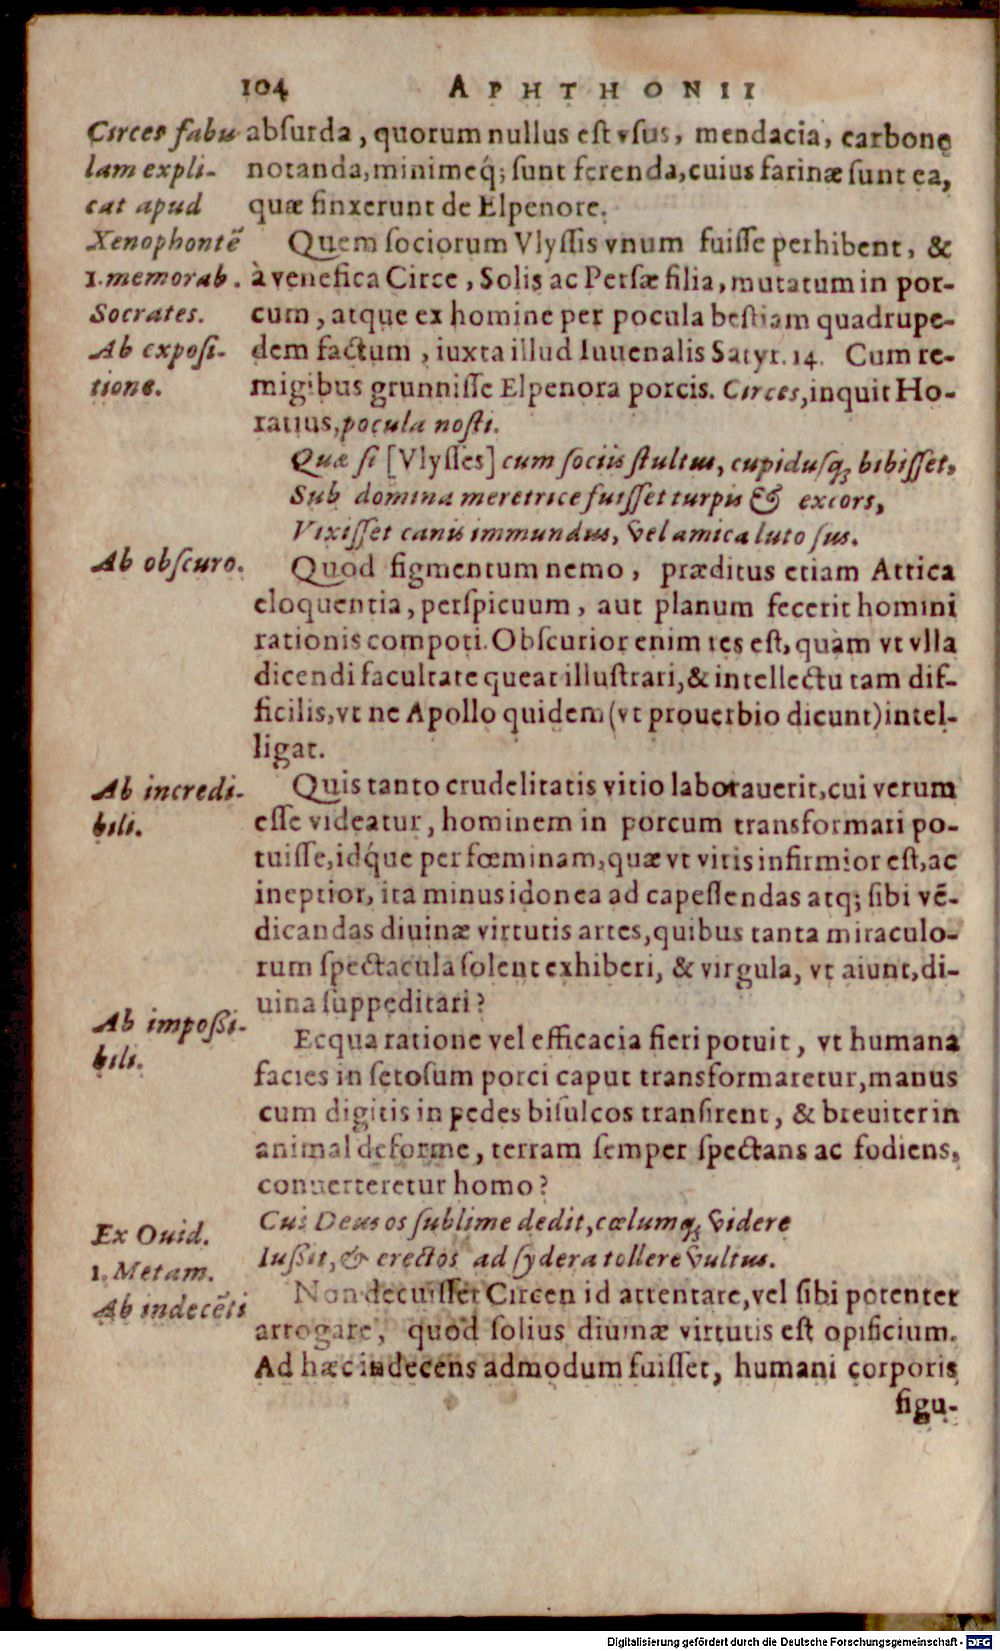 104 APHTHONII
Circes fabu
lam expli-
cat apud
Xenophontē
1. memorab.
Socrates.
Ab exposi-
tione.
absurda, quorum nullus est vsus, mendacia, carbone
notanda, minimeq́; sunt ferenda, cuius farinæ sunt ea,
quæ finxerunt de Elpenore.
Quem sociorum Vlyssis vnum fuisse perhibent, &
à venefica Circe, Solis ac Persæ filia, mutatum in por-
cum, atque ex homine per pocula bestiam quadrupe-
dem factum, iuxta illud Iuuenalis Satyr. 14. Cum re-
migibus grunnisse Elpenora porcis. Circes, inquit Ho-
ratius, pocula nosti.
Quæ si [Vlysses] cum sociis stultus, cupidusq; bibisset,
Sub domina meretrice fuisset turpis & excors,
Vixisset canis immundus, vel amica luto sus.
Ab obscuro.
Quod figmentum nemo, præditus etiam Attica
eloquentia, perspicuum, aut planum fecerit homini
rationis compoti. Obscurior enim res est, quàm vt vlla
dicendi facultate queat illustrari, & intellectu tam dif-
ficilis, vt ne Apollo quidem (vt prouerbio dicunt) intel-
ligat.
Ab incredi-
bili.
Quis tanto crudelitatis vitio laborauerit, cui verum
esse videatur, hominem in porcum transformari po-
tuisse, idq́ue per fœminam, quæ vt viris infirmior est, ac
ineptior, ita minus idonea ad capessendas atq; sibi vē-
dicandas diuinæ virtutis artes, quibus tanta miraculo-
rum spectacula solent exhiberi, & virgula, vt aiunt, di-
uina suppeditari?
Ab impossi-
bili.
Ecqua ratione vel efficacia fieri potuit, vt humana
facies in setosum porci caput transformaretur, manus
cum digitis in pedes bisulcos transirent, & breuiter in
animal deforme, terram semper spectans ac fodiens,
conuerteretur homo?
Ex Ouid.
1. Metam.
Cui Deus os sublime dedit, cœlumq; videre
Iussit, & erectos ad sydera tollere vultus.
Ab indecēti
Non decuisset Circen id attentare, vel sibi potenter
arrogare, quod solius diuinæ virtutis est opificium.
Ad hæc indecens admodum fuisset, humani corporis
figu-
Digitalisierung gefördert durch die Deutsche Forschungsgemeinschaft - DFG